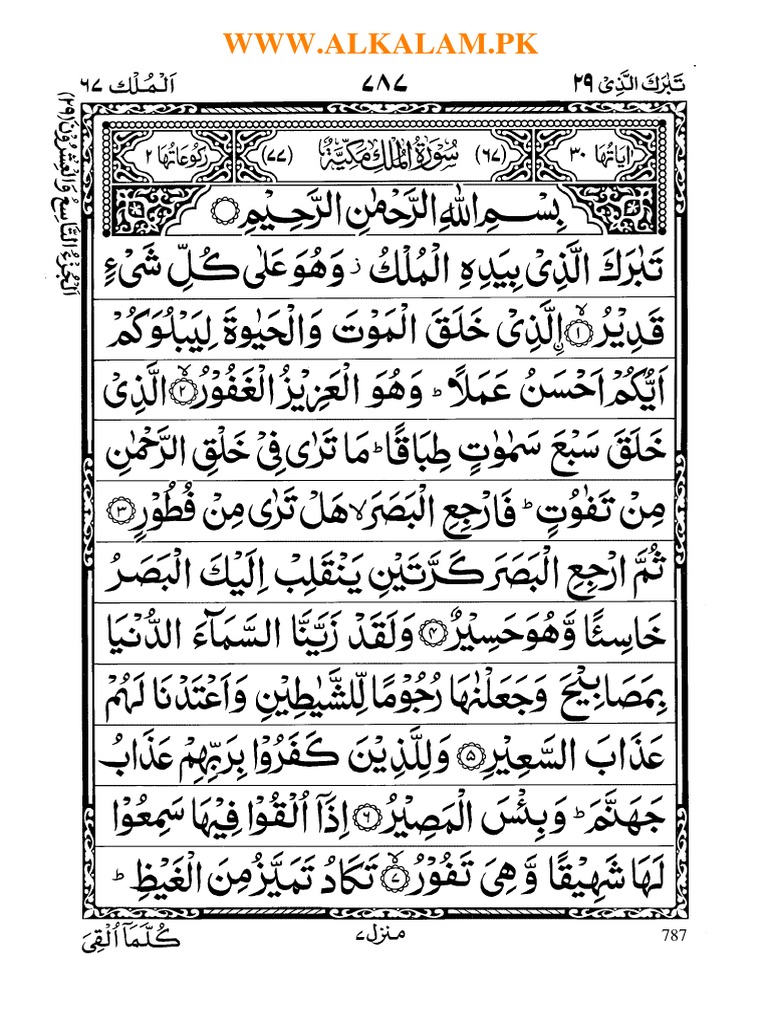 WWW.ALKALAM.PK
تَبٰرَكَ الَّذِیْ ۲۹
۷۸۷
اَلْمُلْك ۶۷
اَلْجُزْءُ التَّاسِعُ وَالْعِشْرُوْنَ (۲۹)
اٰیَاتُهَا ۳۰
(۶۷) سُوْرَةُ الْمُلْكِ مَكِّیَّةٌ (۷۷)
رُكُوْعَاتُهَا ۲
بِسْمِ اللهِ الرَّحْمٰنِ الرَّحِیْمِ ○
تَبٰرَكَ الَّذِیْ بِیَدِهِ الْمُلْكُ ؗ وَهُوَ عَلٰی كُلِّ شَیْءٍ
قَدِیْرُ ۙ﴿۱﴾ اِۨلَّذِیْ خَلَقَ الْمَوْتَ وَالْحَیٰوةَ لِیَبْلُوَكُمْ
اَیُّكُمْ اَحْسَنُ عَمَلًا ؕ وَهُوَ الْعَزِیْزُ الْغَفُوْرُ ۙ﴿۲﴾ الَّذِیْ
خَلَقَ سَبْعَ سَمٰوٰتٍ طِبَاقًا ؕ مَا تَرٰی فِیْ خَلْقِ الرَّحْمٰنِ
مِنْ تَفٰوُتٍ ؕ فَارْجِعِ الْبَصَرَ ۙ هَلْ تَرٰی مِنْ فُطُوْرٍ ﴿۳﴾
ثُمَّ ارْجِعِ الْبَصَرَ كَرَّتَیْنِ یَنْقَلِبْ اِلَیْكَ الْبَصَرُ
خَاسِئًا وَّهُوَ حَسِیْرٌ ﴿۴﴾ وَلَقَدْ زَیَّنَّا السَّمَآءَ الدُّنْیَا
بِمَصَابِیْحَ وَجَعَلْنٰهَا رُجُوْمًا لِّلشَّیٰطِیْنِ وَاَعْتَدْنَا لَهُمْ
عَذَابَ السَّعِیْرِ ﴿۵﴾ وَلِلَّذِیْنَ كَفَرُوْا بِرَبِّهِمْ عَذَابُ
جَهَنَّمَ ؕ وَبِئْسَ الْمَصِیْرُ ﴿۶﴾ اِذَاۤ اُلْقُوْا فِیْهَا سَمِعُوْا
لَهَا شَهِیْقًا وَّهِیَ تَفُوْرُ ۙ﴿۷﴾ تَكَادُ تَمَیَّزُ مِنَ الْغَیْظِ ؕ
787
منزل ۷
كُلَّمَاۤ اُلْقِیَ